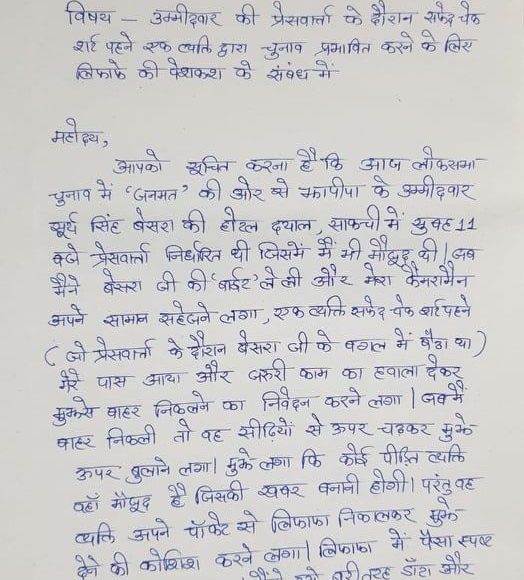 विषय – उम्मीदवार की प्रेसवार्त्ता के दौरान सफेद चेक
शर्ट पहने एक व्यक्ति द्वारा चुनाव प्रभावित करने के लिए
लिफाफे की पेशकश के संबंध में
महोदय,
आपको सूचित करना है कि आज लोकसभा
चुनाव में 'जनमत' की ओर से झापीपा के उम्मीदवार
सूर्य सिंह बेसरा की होटल दयाल, साकची में सुबह 11
बजे प्रेसवार्त्ता निर्धारित थी जिसमें मैं भी मौजूद थी। जब
मैंने बेसरा जी की 'बाईट' ले ली और मेरा कैमरामैन
अपने सामान सहेजने लगा, एक व्यक्ति सफेद चेक शर्ट पहने
(जो प्रेसवार्त्ता के दौरान बेसरा जी के बगल में बैठा था)
मेरे पास आया और जरुरी काम का हवाला देकर
मुझसे बाहर निकलने का निवेदन करने लगा। जब मैं
बाहर निकली तो वह सीढ़ियों से ऊपर चढ़कर मुझे
ऊपर बुलाने लगा। मुझे लगा कि कोई पीड़ित व्यक्ति
वहाँ मौजूद है जिसकी खबर बनानी होगी। परंतु वह
व्यक्ति अपने पॉकेट से लिफाफा निकालकर मुझे
देने की कोशिश करने लगा। लिफाफा में पैसा स्पष्ट
डाँटा और